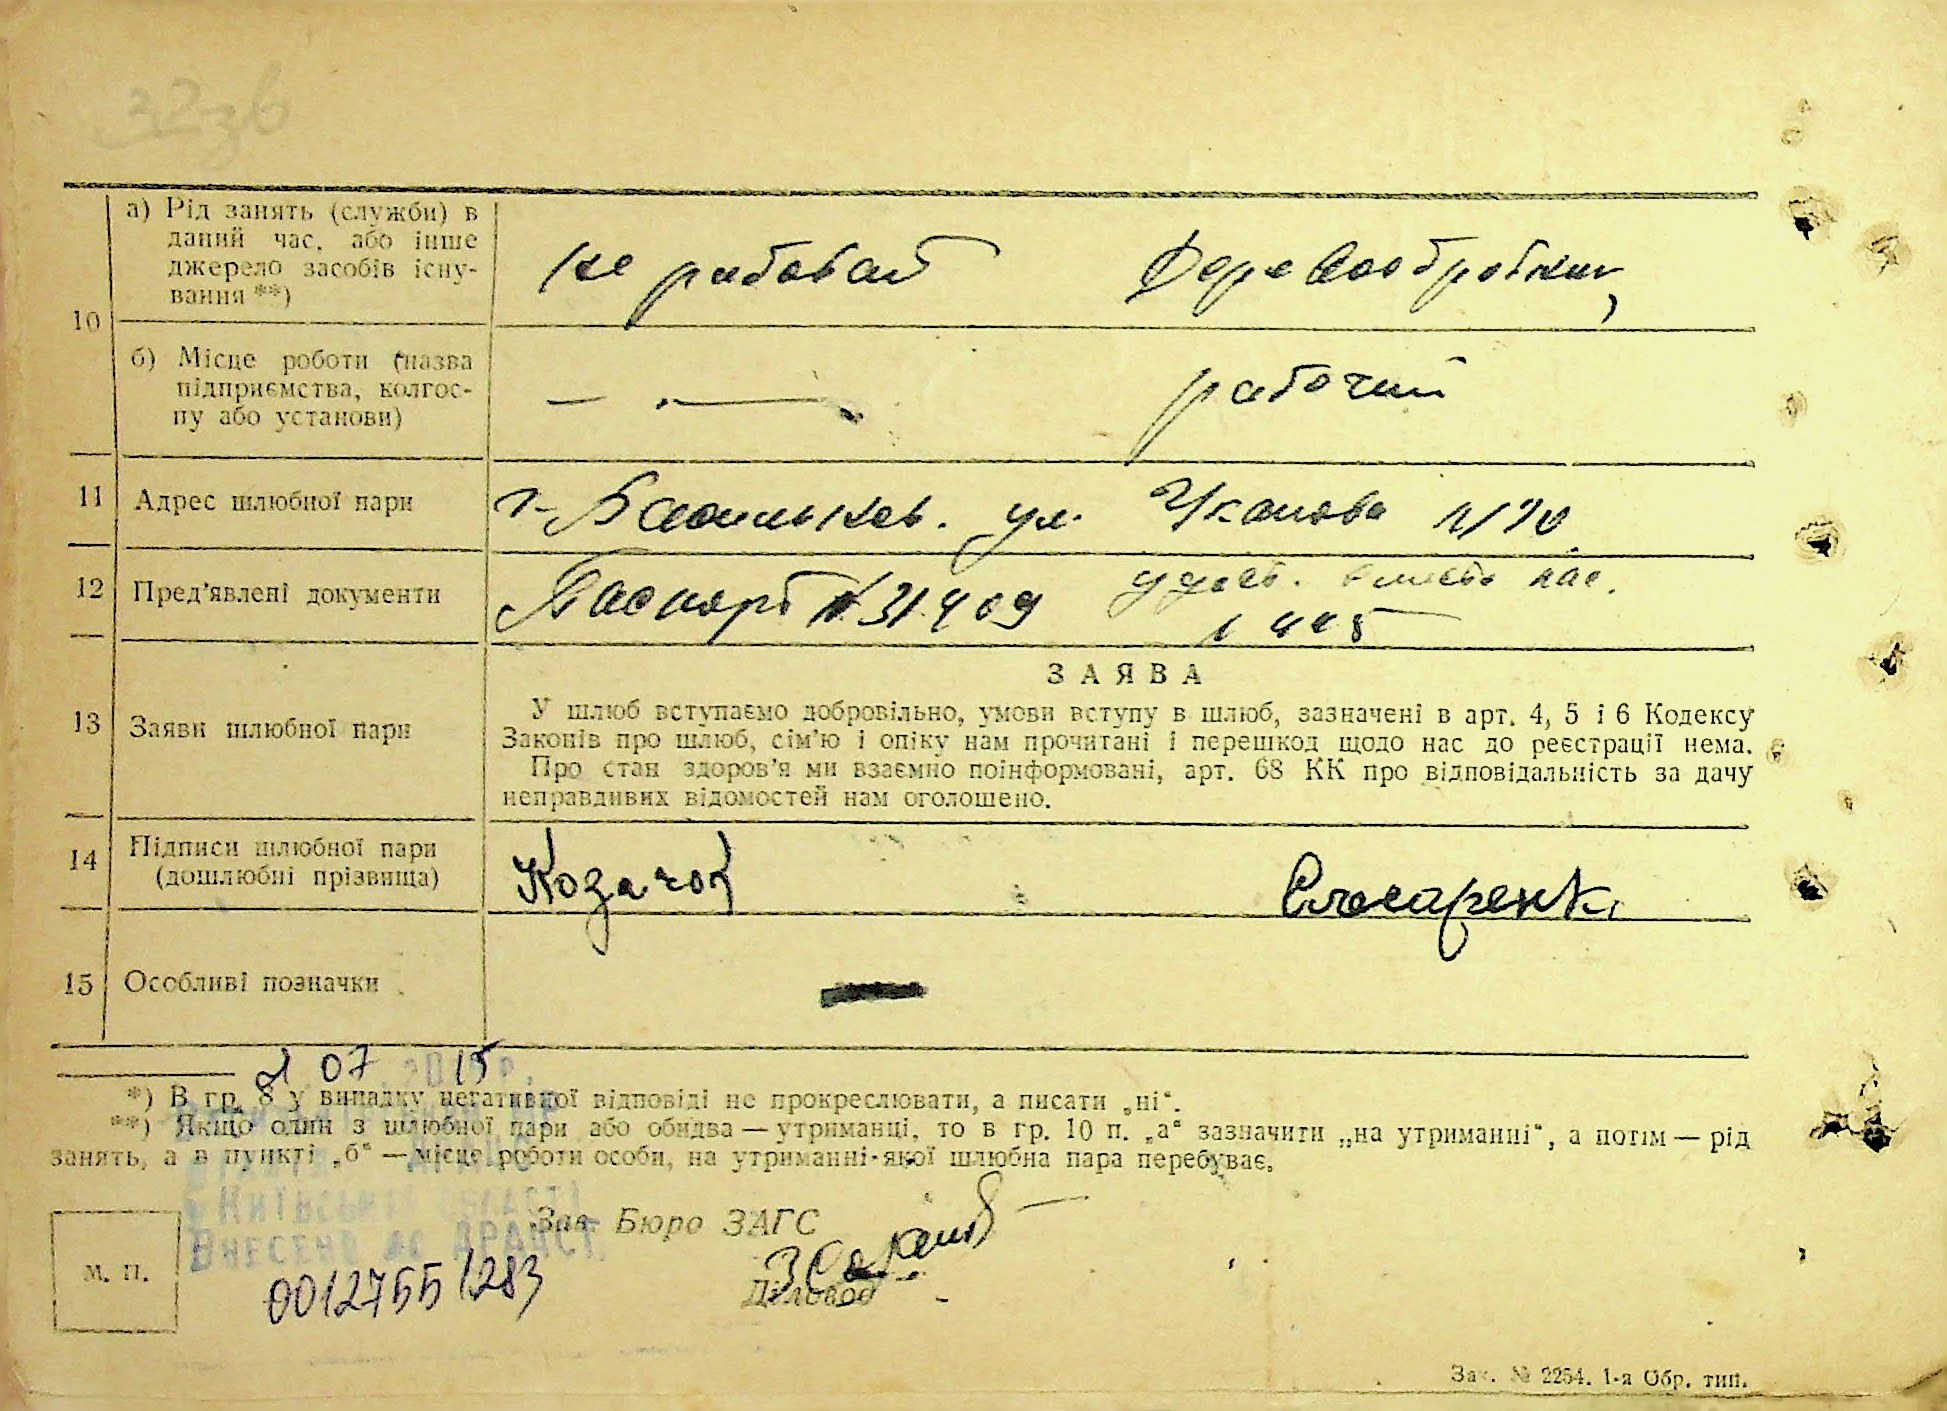 10
а) Рід занять (служби) в
даний час, або інше
джерело засобів існу-
вання **)
не работает
б) Місце роботи (назва
підприємства, колгос-
пу або установи)
— —
рабочий
11
Адрес шлюбної пари
г. Васильков. ул. №70
12
Пред’явлені документи
Паспорт №31409
удост. вместо пас.
13
Заяви шлюбної пари
ЗАЯВА
У шлюб вступаємо добровільно, умови вступу в шлюб, зазначені в арт. 4, 5 і 6 Кодексу
Законів про шлюб, сім’ю і опіку нам прочитані і перешкод щодо нас до реєстрації нема.
Про стан здоров’я ми взаємно поінформовані, арт. 68 КК про відповідальність за дачу
неправдивих відомостей нам оголошено.
14
Підписи шлюбної пари
(дошлюбні прізвища)
Козачок
Слюсаренко
15
Особливі позначки
07 15
*) В гр. 8 у випадку негативної відповіді не прокреслювати, а писати „ні“.
**) Якщо один з шлюбної пари або обидва — утриманці, то в гр. 10 п. „а“ зазначити „на утриманні“, а потім — рід
занять, а в пункті „б“ — місце роботи особи, на утриманні якої шлюбна пара перебуває.
Київській області
Внесено до ДРАЦСГ
Зав. Бюро ЗАГС
Діловод
М. П.
00127551283
Зак. № 2254. 1-а Обр. тип.